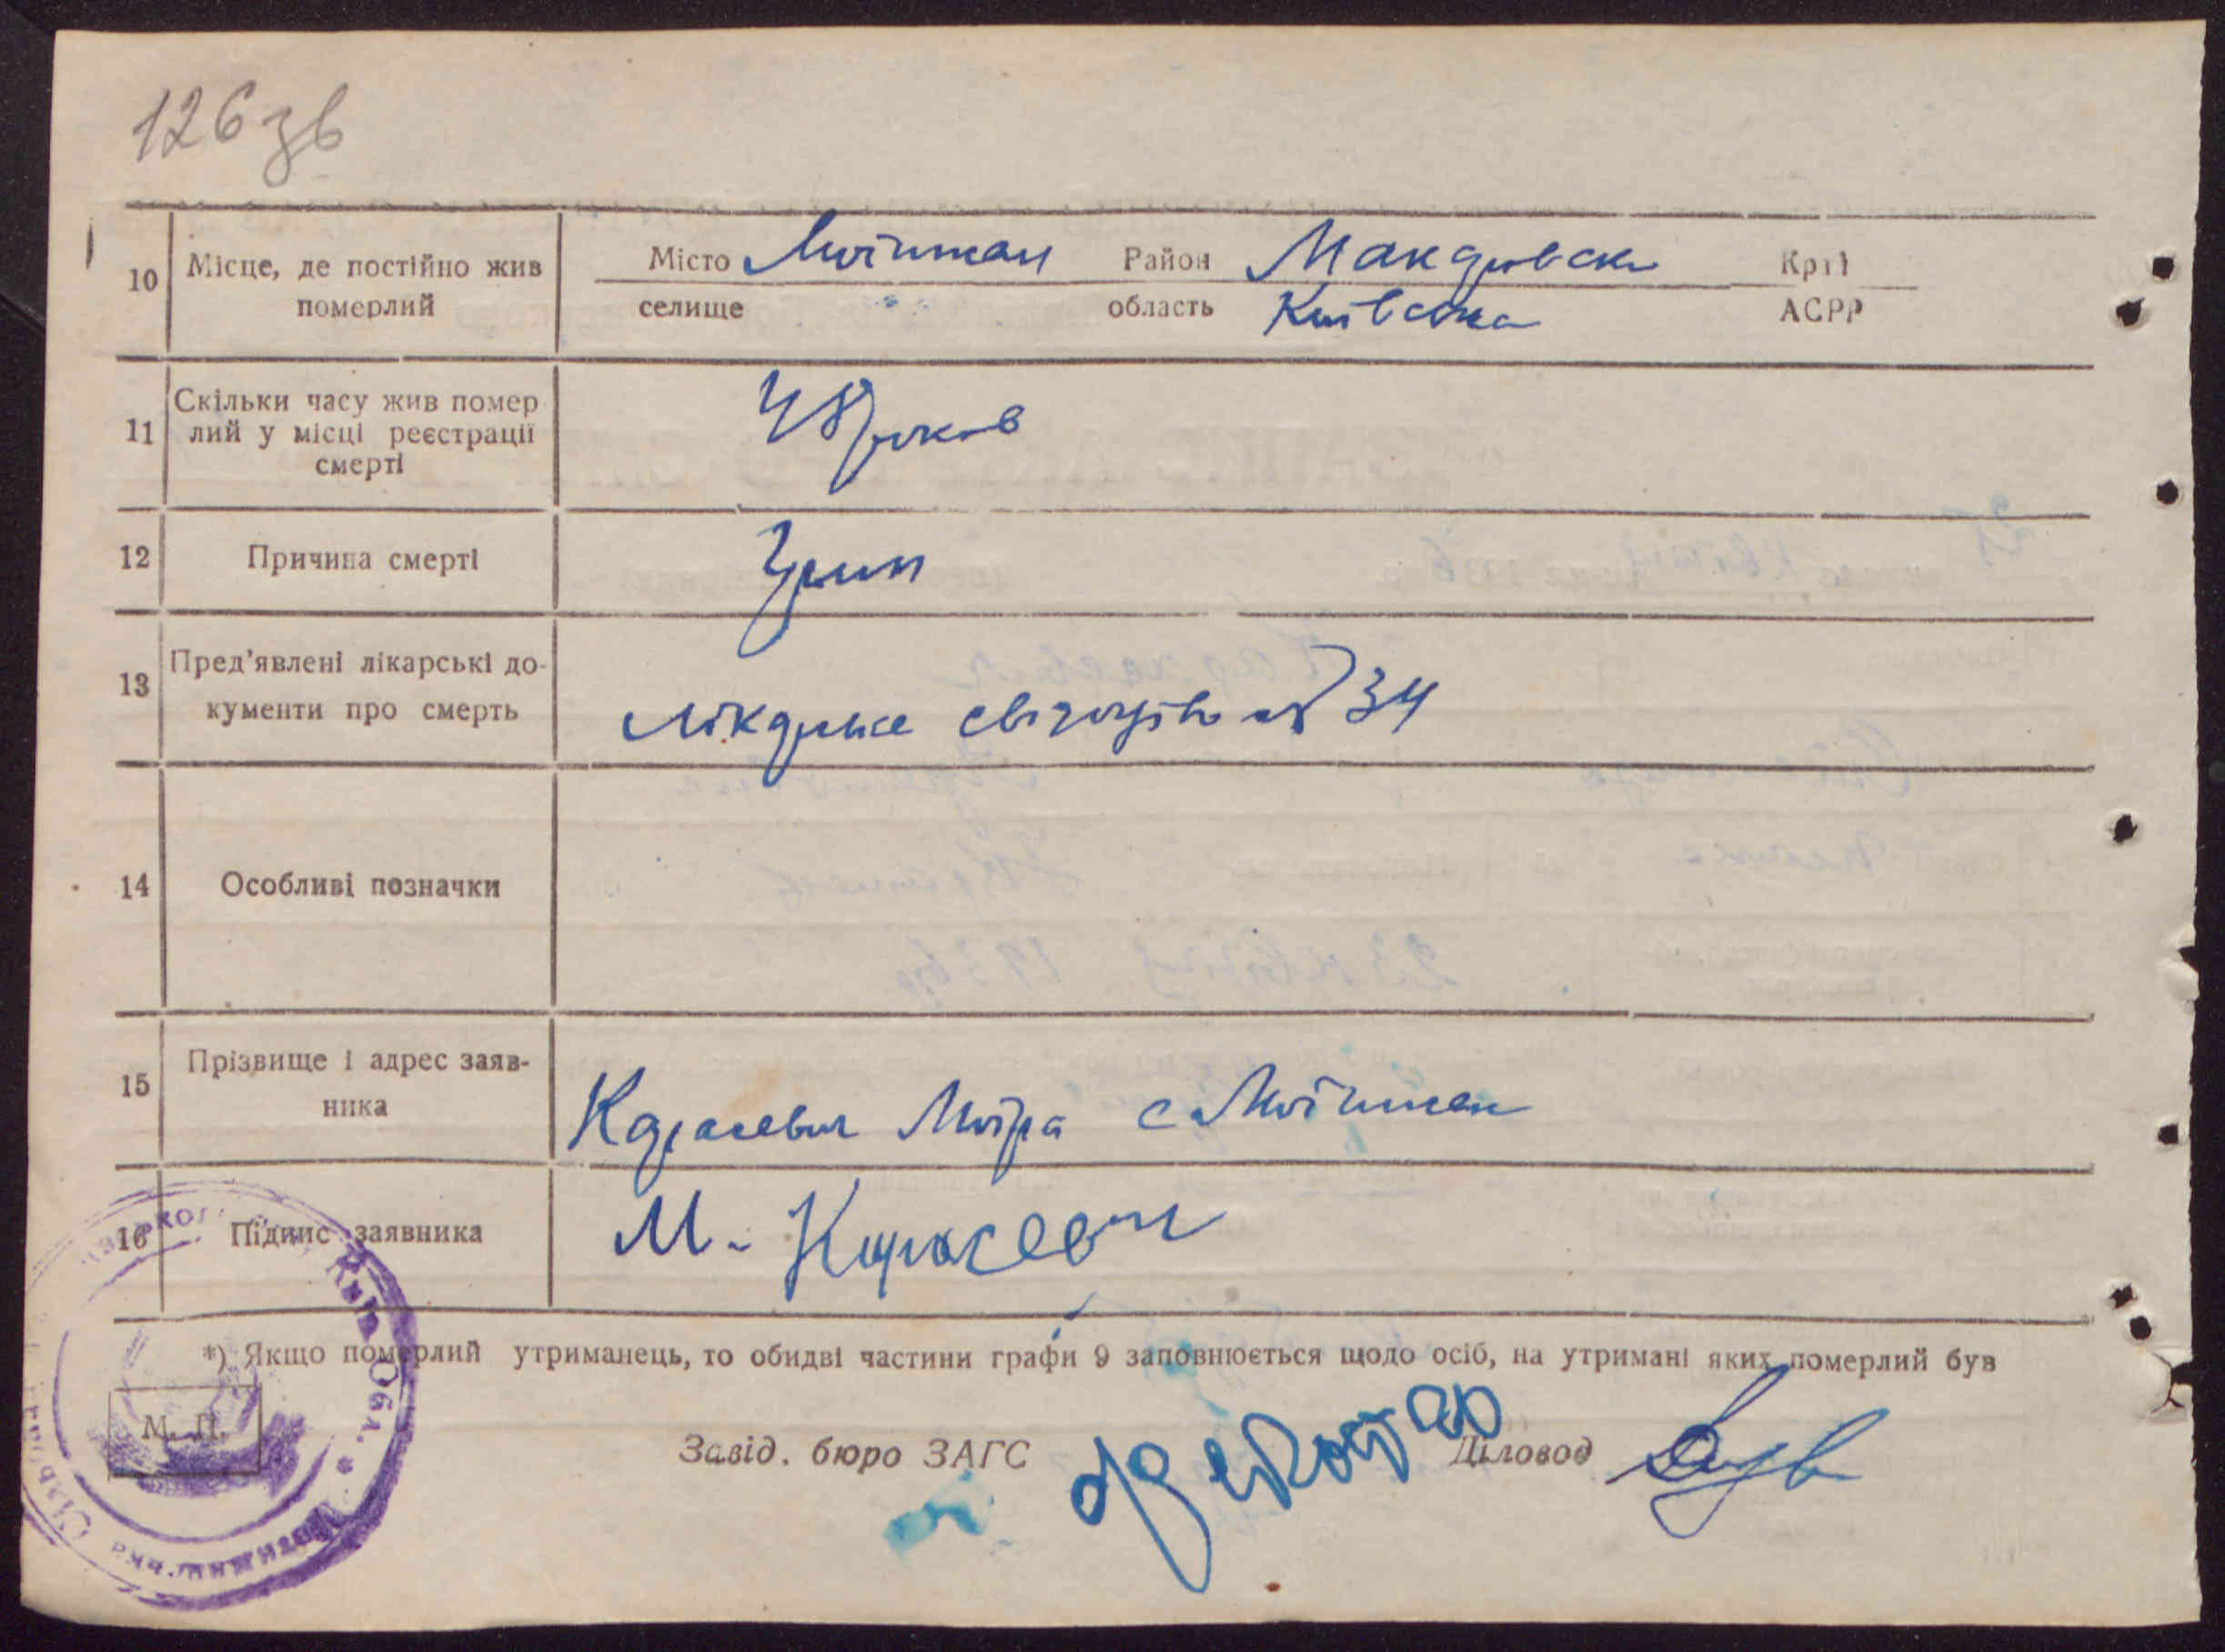 126зв
10 Місце, де постійно жив померлий
Місто Мотижин Район Макарівськ Край
селище область Київська АСРР
11 Скільки часу жив помер
лий у місці реєстрації
смерті
48 років
12 Причина смерті
Грип
13 Пред'явлені лікарські до-
кументи про смерть
лікарське свідоцтво № 34
14 Особливі позначки
15 Прізвище і адрес заяв-
ника
Карасевич Мотря с Мотижин
16 Підпис заявника
М. Карасевич
*) Якщо померлий утриманець, то обидві частини графи 9 заповнюється щодо осіб, на утримані яких померлий був
М. П.
Завід. бюро ЗАГС Діловод